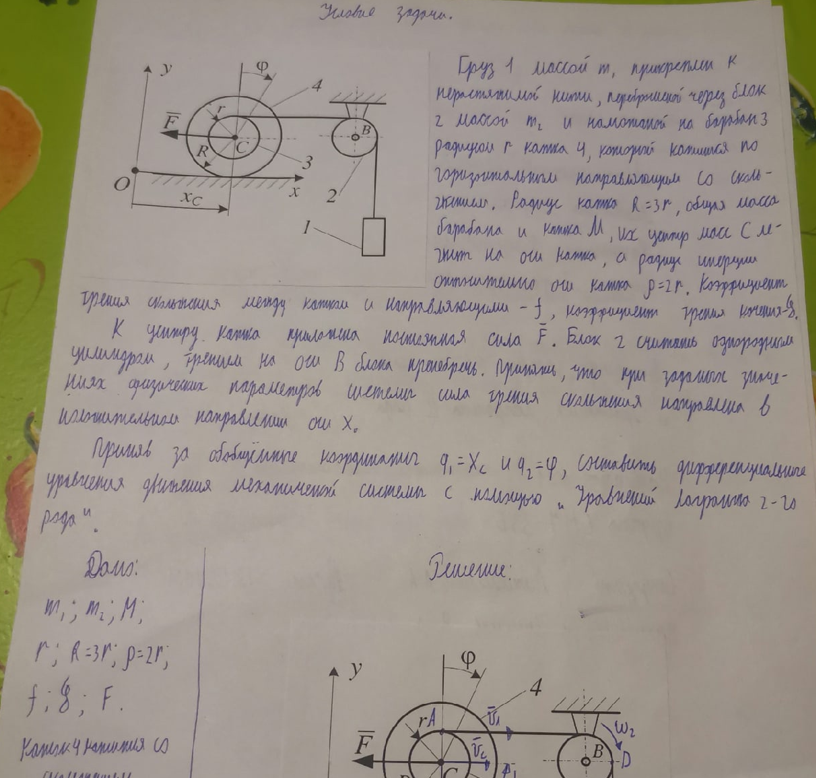 Условие задачи.
y
φ
4
r
F
C
B
R
3
O
x
2
x_C
1
Груз 1 массой m₁ прикреплен к
нерастяжимой нити, переброшенной через блок
2 массой m₂ и намотаной на барабан 3
радиусом r катка 4, который катится по
горизонтальным направляющим со сколь-
жением. Радиус катка R=3r, общая масса
барабана и катка M, их центр масс C ле-
жит на оси катка, а радиус инерции
относительно оси катка ρ=2r. Коэффициент
трения скольжения между катком и направляющими - f, коэффициент трения качения - δ.
К центру катка приложена постоянная сила F̄. Блок 2 считать однородным
цилиндром, трением на оси B блока пренебречь. Принять, что при заданных значе-
ниях физических параметров системы сила трения скольжения направлена в
положительном направлении оси X.
Приняв за обобщённые координаты q₁=X_C и q₂=φ, составить дифференциальные
уравнения движения механической системы с помощью „Уравнений Лагранжа 2-го
рода“.
Дано:
m₁; m₂; M;
r; R=3r; ρ=2r;
f; δ; F.
Каток 4 катится со
Решение:
y
φ
4
r A
v̄₁
ω₂
F̄
v̄_C
B
D
C